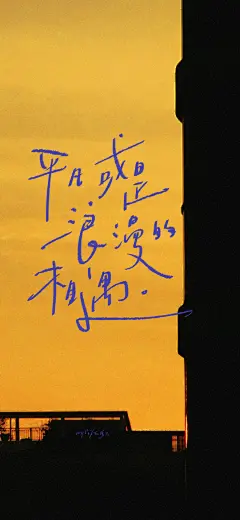 平凡或是
浪漫的
相遇。